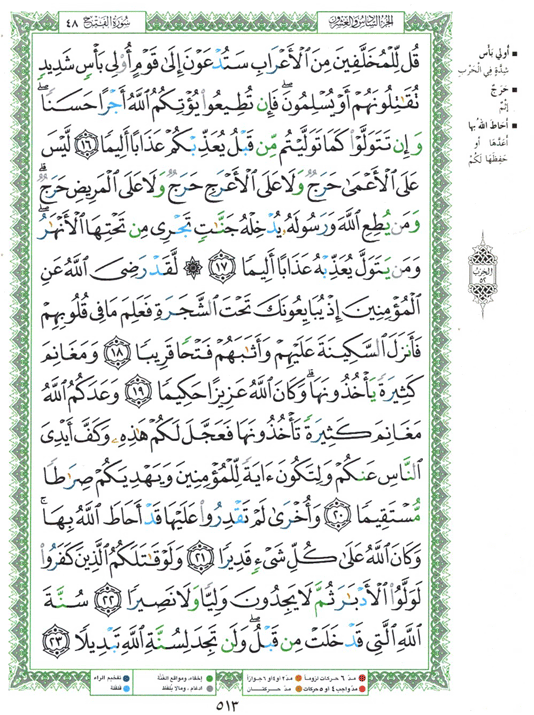 الجزء السادس والعشرون
سورة الفتح ٤٨
قُل لِّلْمُخَلَّفِينَ مِنَ ٱلْأَعْرَابِ سَتُدْعَوْنَ إِلَىٰ قَوْمٍ أُو۟لِى بَأْسٍ شَدِيدٍ
تُقَٰتِلُونَهُمْ أَوْ يُسْلِمُونَ ۖ فَإِن تُطِيعُوا۟ يُؤْتِكُمُ ٱللَّهُ أَجْرًا حَسَنًا ۖ
وَإِن تَتَوَلَّوْا۟ كَمَا تَوَلَّيْتُم مِّن قَبْلُ يُعَذِّبْكُمْ عَذَابًا أَلِيمًا ١٦ لَّيْسَ
عَلَى ٱلْأَعْمَىٰ حَرَجٌ وَلَا عَلَى ٱلْأَعْرَجِ حَرَجٌ وَلَا عَلَى ٱلْمَرِيضِ حَرَجٌ ۗ
وَمَن يُطِعِ ٱللَّهَ وَرَسُولَهُۥ يُدْخِلْهُ جَنَّٰتٍ تَجْرِى مِن تَحْتِهَا ٱلْأَنْهَٰرُ ۖ
وَمَن يَتَوَلَّ يُعَذِّبْهُ عَذَابًا أَلِيمًا ١٧ ۞ لَّقَدْ رَضِىَ ٱللَّهُ عَنِ
ٱلْمُؤْمِنِينَ إِذْ يُبَايِعُونَكَ تَحْتَ ٱلشَّجَرَةِ فَعَلِمَ مَا فِى قُلُوبِهِمْ
فَأَنزَلَ ٱلسَّكِينَةَ عَلَيْهِمْ وَأَثَٰبَهُمْ فَتْحًا قَرِيبًا ١٨ وَمَغَانِمَ
كَثِيرَةً يَأْخُذُونَهَا ۗ وَكَانَ ٱللَّهُ عَزِيزًا حَكِيمًا ١٩ وَعَدَكُمُ ٱللَّهُ
مَغَانِمَ كَثِيرَةً تَأْخُذُونَهَا فَعَجَّلَ لَكُمْ هَٰذِهِۦ وَكَفَّ أَيْدِىَ
ٱلنَّاسِ عَنكُمْ وَلِتَكُونَ ءَايَةً لِّلْمُؤْمِنِينَ وَيَهْدِيَكُمْ صِرَٰطًا
مُّسْتَقِيمًا ٢٠ وَأُخْرَىٰ لَمْ تَقْدِرُوا۟ عَلَيْهَا قَدْ أَحَاطَ ٱللَّهُ بِهَا ۚ
وَكَانَ ٱللَّهُ عَلَىٰ كُلِّ شَىْءٍ قَدِيرًا ٢١ وَلَوْ قَٰتَلَكُمُ ٱلَّذِينَ كَفَرُوا۟
لَوَلَّوُا۟ ٱلْأَدْبَٰرَ ثُمَّ لَا يَجِدُونَ وَلِيًّا وَلَا نَصِيرًا ٢٢ سُنَّةَ
ٱللَّهِ ٱلَّتِى قَدْ خَلَتْ مِن قَبْلُ ۖ وَلَن تَجِدَ لِسُنَّةِ ٱللَّهِ تَبْدِيلًا ٢٣
أولي بأس
شدة في الحرب
حرج
إثم
أحاط الله بها
أعدها أو
حفظها لكم
الحزب
مد ٦ حركات لزوماً مد ٢ أو ٤ أو ٦ جوازاً
مد واجب ٤ أو ٥ حركات مد حركتان
إخفاء، ومواقع الغنة
إدغام، وما لا يلفظ
تفخيم الراء
قلقلة
٥١٣